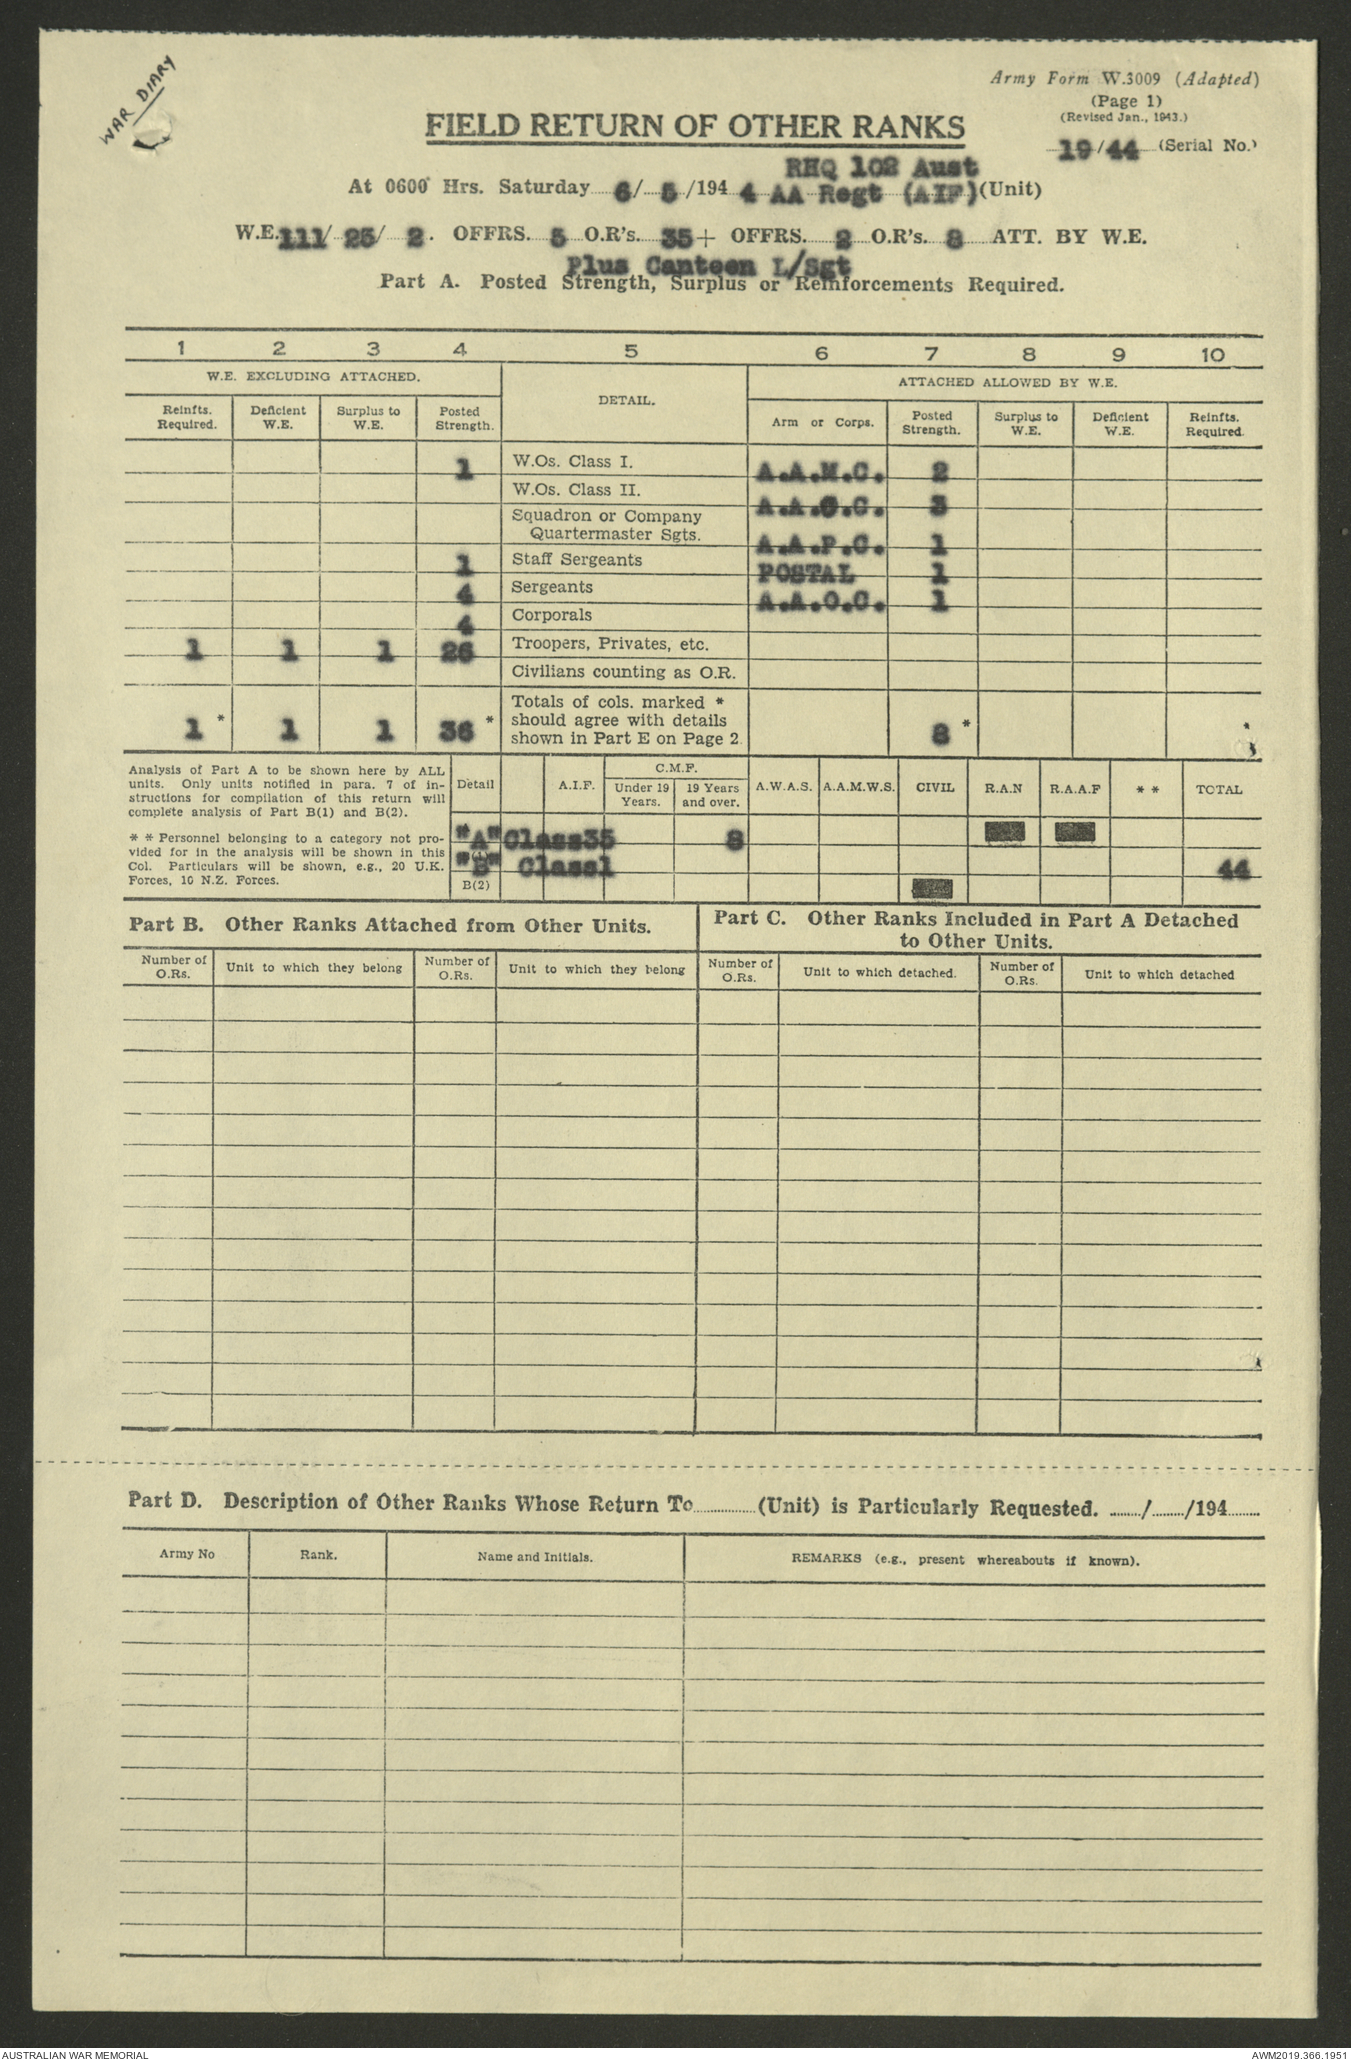 WAR DIARY
Army Form W.3009 (Adapted)
(Page 1)
(Revised Jan., 1943.)
FIELD RETURN OF OTHER RANKS
19/44 (Serial No.)
RHQ 102 Aust
At 0600 Hrs. Saturday 6/ 5 /194 4 AA Regt (AIF)(Unit)
W.E. 111/ 25/ 2. OFFRS. 5 O.R's. 35 + OFFRS. 2 O.R's. 8 ATT. BY W.E.
Plus Canteen L/Sgt
Part A. Posted Strength, Surplus or Reinforcements Required.
1 2 3 4 5 6 7 8 9 10
W.E. EXCLUDING ATTACHED. DETAIL. ATTACHED ALLOWED BY W.E.
Reinfts. Required. Deficient W.E. Surplus to W.E. Posted Strength. Arm or Corps. Posted Strength. Surplus to W.E. Deficient W.E. Reinfts. Required.
1 W.Os. Class I. A.A.M.C. 2
W.Os. Class II. A.A.C. 3
Squadron or Company
Quartermaster Sgts. A.A.P.C. 1
1 Staff Sergeants POSTAL 1
4 Sergeants A.A.O.C. 1
4 Corporals
1 1 1 26 Troopers, Privates, etc.
Civilians counting as O.R.
Totals of cols. marked *
should agree with details
1 * 1 1 36 * shown in Part E on Page 2. 8 * *
Analysis of Part A to be shown here by ALL
units. Only units notified in para. 7 of in-
structions for compilation of this return will
complete analysis of Part B(1) and B(2).
* * Personnel belonging to a category not pro-
vided for in the analysis will be shown in this
Col. Particulars will be shown, e.g., 20 U.K.
Forces, 10 N.Z. Forces.
Detail A.I.F. C.M.F. Under 19 Years. 19 Years and over. A.W.A.S. A.A.M.W.S. CIVIL R.A.N R.A.A.F * * TOTAL
"A" Class 35 8
"B" Class 1 44
B(2)
Part B. Other Ranks Attached from Other Units.
Part C. Other Ranks Included in Part A Detached
to Other Units.
Number of O.Rs. Unit to which they belong Number of O.Rs. Unit to which they belong Number of O.Rs. Unit to which detached. Number of O.Rs. Unit to which detached
Part D. Description of Other Ranks Whose Return To.............(Unit) is Particularly Requested. ......../......../194........
Army No Rank. Name and Initials. REMARKS (e.g., present whereabouts if known).
AUSTRALIAN WAR MEMORIAL
AWM2019.366.1951